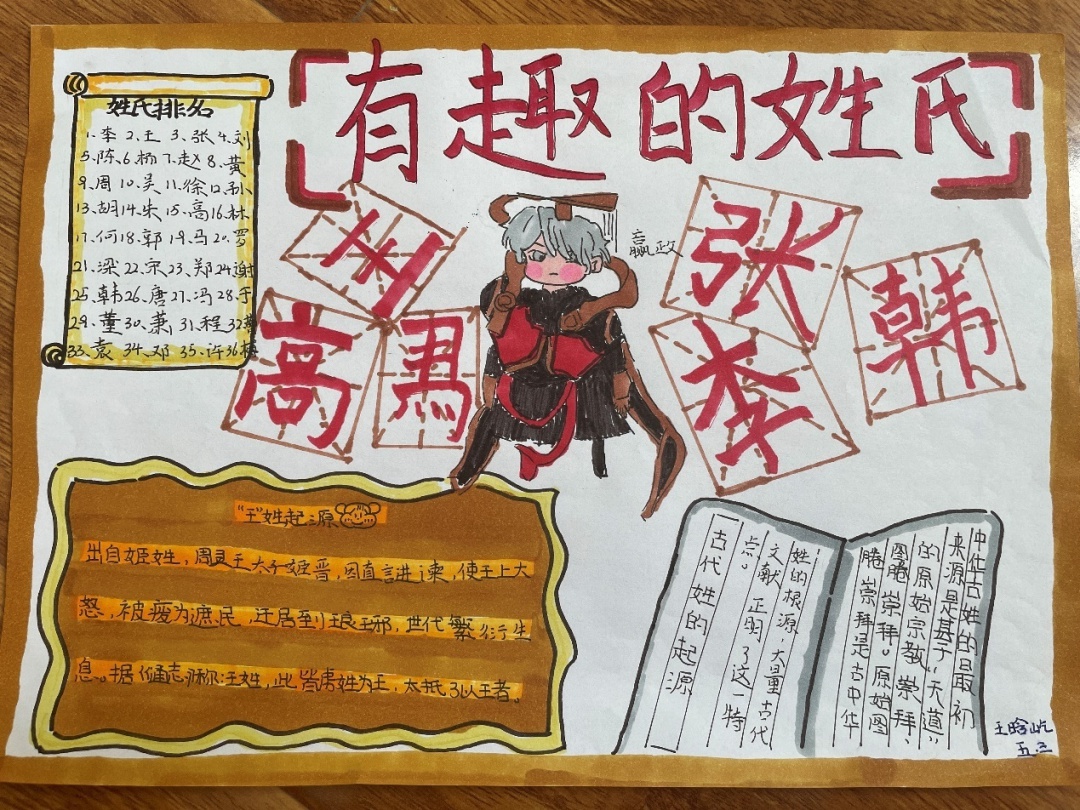 有趣的姓氏
姓氏排名
1、李 2、王 3、张 4、刘
5、陈、6、杨 7、赵 8、黄
9、周 10、吴 11、徐 12、孙
13、胡 14、朱 15、高 16、林
17、何 18、郭 19、马 20、罗
21、梁 22、宋 23、郑 24、谢
25、韩 26、唐 27、冯 28、于
29、董 30、萧 31、程 32
33、袁 34、邓 35、许 36
王
高
馬
嬴政
张
李
韩
“王”姓起源
出自姬姓，周灵王太子姬晋，因直言进谏，使王上大
怒，被废为庶民，迁居到琅琊，世代繁衍生
息。据《通志 称：王姓，此皆虏姓为王，太抵 以王者。
古代姓的起源
中华古姓的最初
来源是基于“天道”
的原始宗教崇拜、
图腾崇拜。原始图
腾崇拜是古中华
姓的根源，大量古代
文献 正明了这一特
点。
王晗屹
五.三